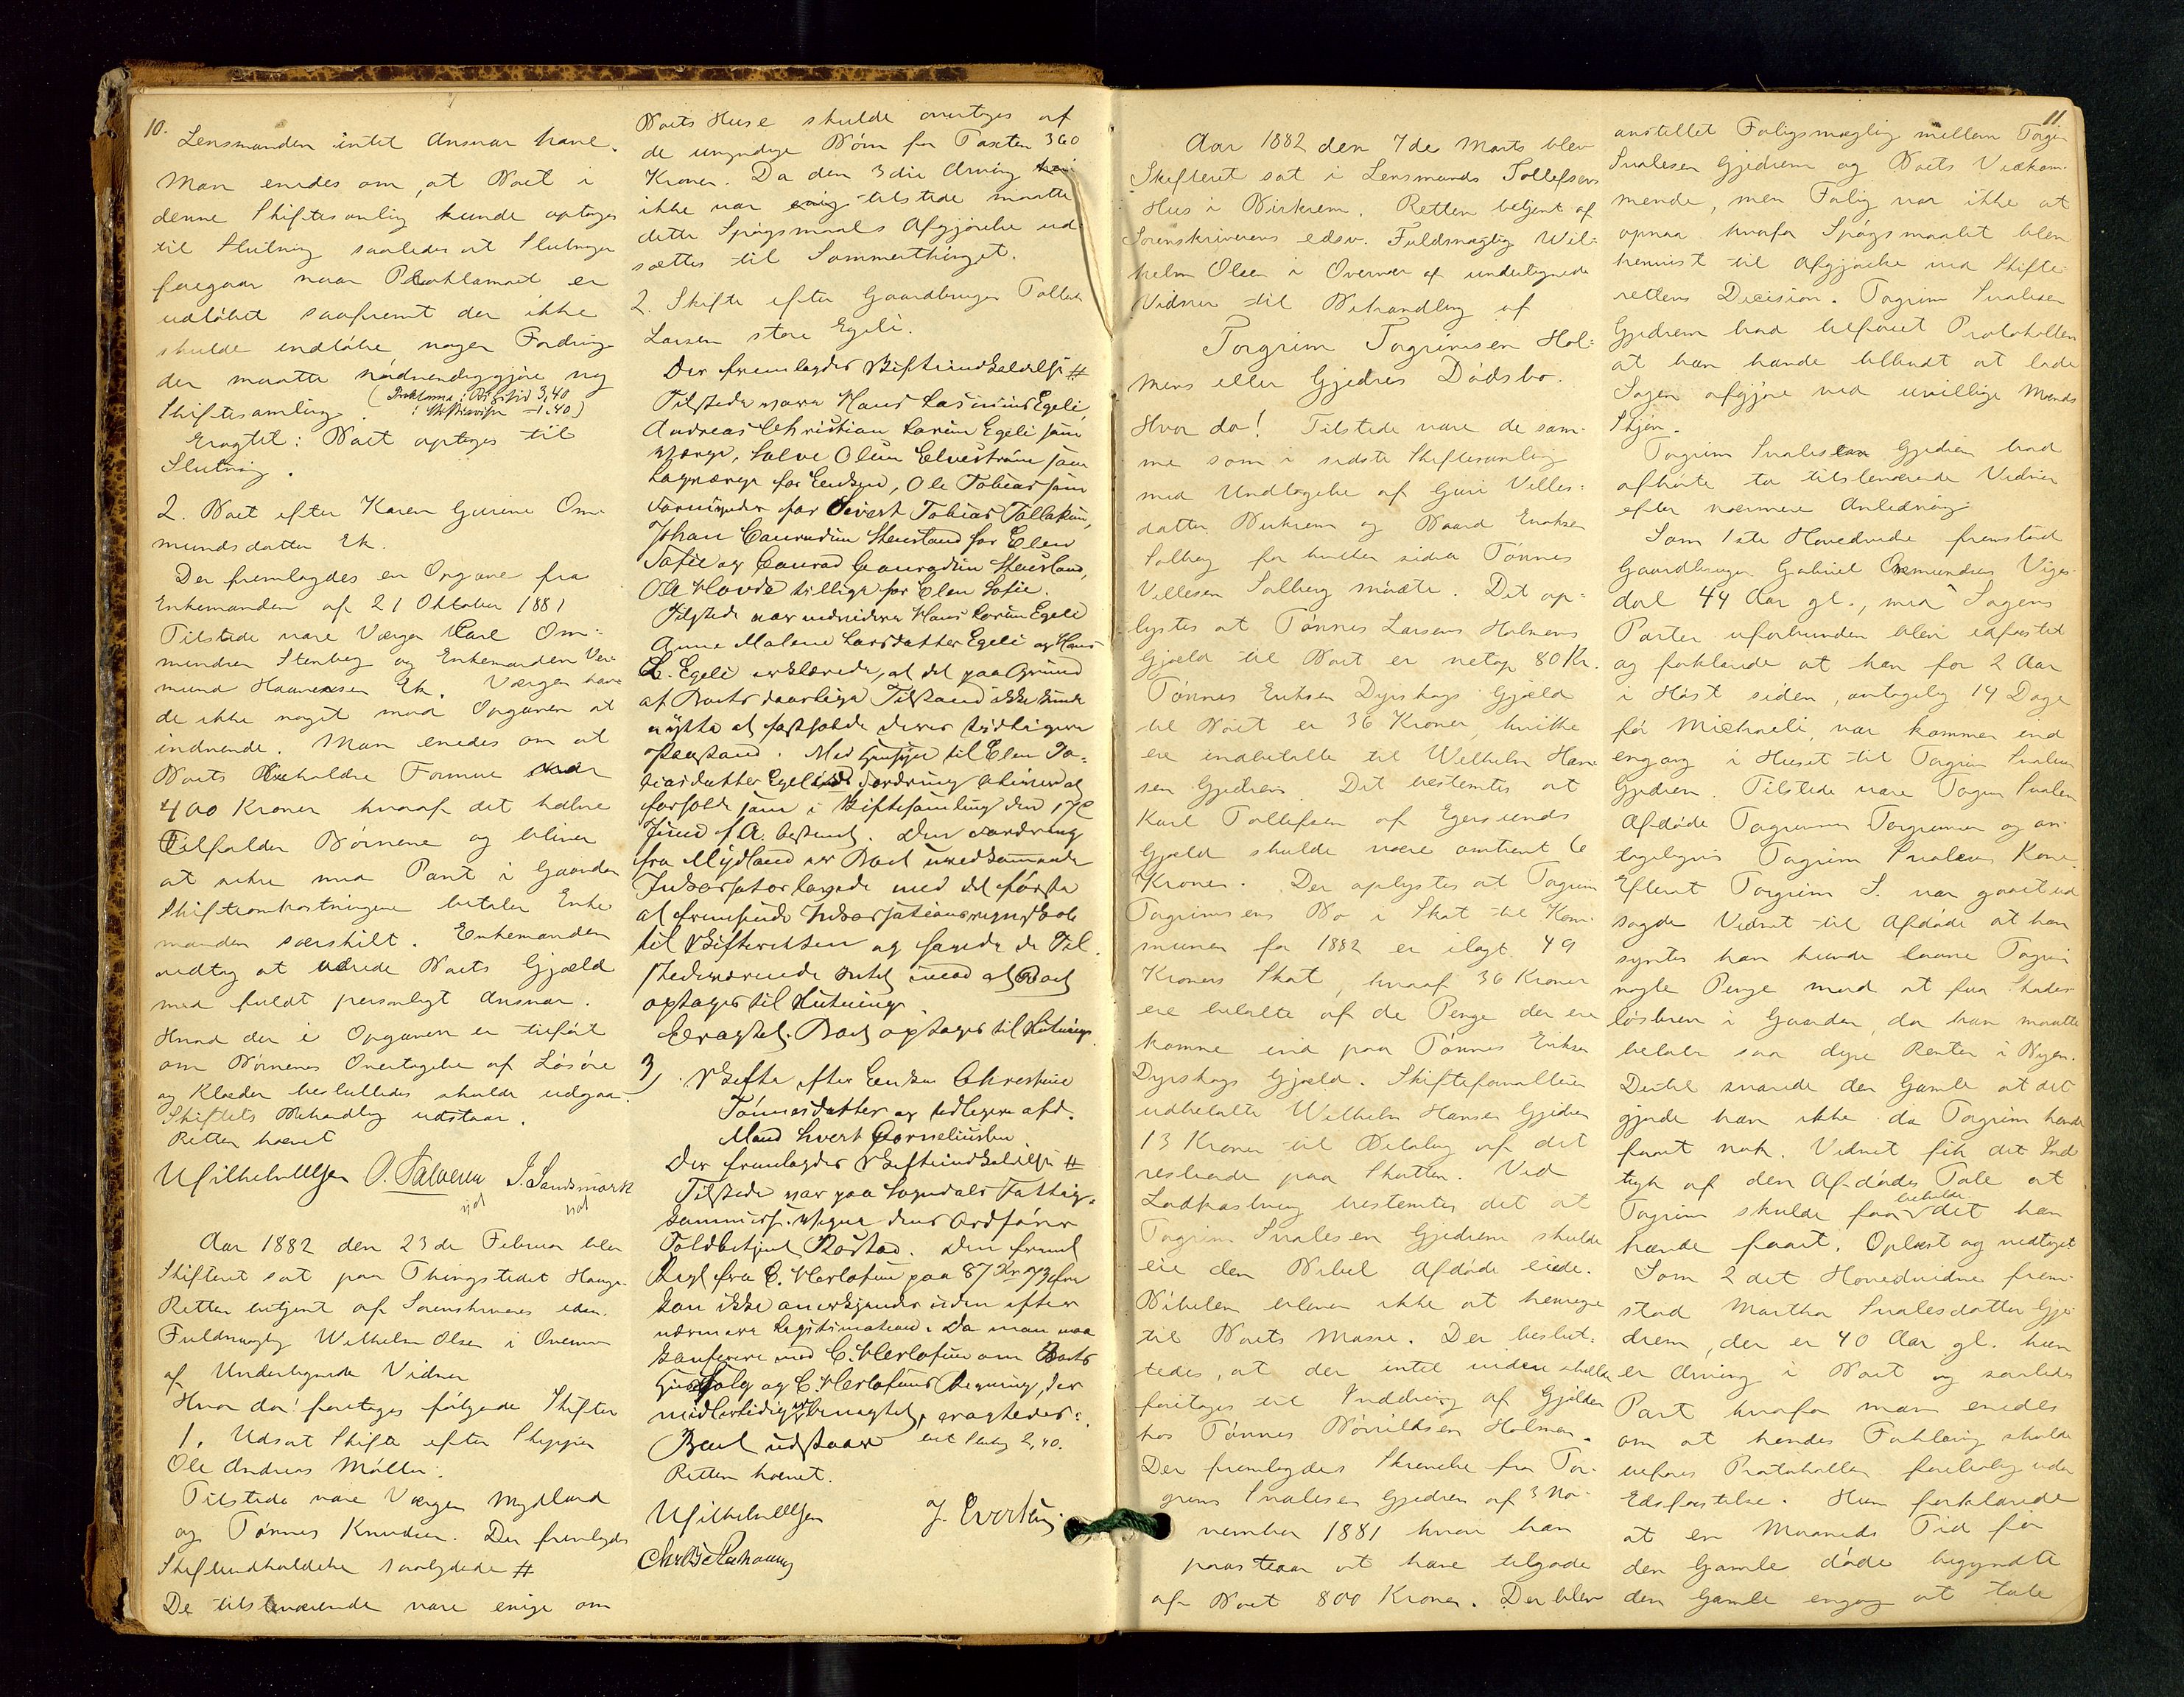 10.
Lensmanden intet Ansvar have.
Man enedes om, at Boet i
denne Skiftesamling kunde optages
til Slutning saaledes at Slutningen
foregaar naar Proklamaet er
udløbet saafremt der ikke
skulde indløbe nogen Fordring
der maatte nødvendiggjøre ny
Skiftesamling. (Proklama: 3,40
1,40)
Eragtet: Boet optages til
Slutning.
2. Boet efter Karen Gurine Om-
mundsdatter Ek.
Der fremlagdes en Opgave fra
Enkemanden af 21 Oktober 1881
Tilstede vare Værgen Carl Om-
mundsen Stenberg og Enkemanden Ver-
mund Haavensen Ek. Værgen havde
de ikke noget mod Opgaven at
indvende. Man enedes om at
Boets Beholdne Formue var
400 Kroner hvoraf det halve
Tilfalder Børnene og bliver
at sikre med Pant i Gaarden
Skifteomkostningerne betaler Enke-
manden særskilt. Enkemanden
vedtog at udrede Boets Gjæld
med fuldt personligt Ansvar.
Hvad der i Opgaven er tilført
om Børnenes Overtagelse af Løsøre
og Klæder besluttedes skulde udgaa.
Skiftets Behandling udstaar.
Retten hævet
Wilhelm Olsen O. Salvesen J. Sandsmark
Aar 1882 den 23de Februar blev
Skifteret sat paa Thingstedet Hauge
Retten betjent af Sorenskriverens edsv.
Fuldmægtig Wilhelm Olsen i Overvær
af Undertegnede Vidner
Hvor da! foretages følgende Skifter
1. Udsat Skifte efter Skipper
Ole Andreas Møller.
Tilstede vare Værgen Mydland
og Tønnes Knudsen. Der fremlagdes
Skifteindkaldelse saalydende #
De tilstedeværende vare enige om
Boets Huse skulde overtages af
de umyndige Børn for Taxten 360
Kroner. Da den 3die Arving
ikke var tilstede maatte
dette Spørgsmaals Afgjørelse ud-
sættes til Sommerthinget.
2. Skifte efter Gaardbruger Tollak
Larsen store Egeli.
Der fremlagdes Skifteindkaldelse #
Tilstede vare Hans Larsen Egeli,
Andreas Christian Larsen Egeli som
Værge, Salve Olsen Elvestrøm som
Lagværge for Enken, Ole Tobias som
Formynder for Sivert Tobias Tollaksen,
Johan Conradsen Skeivland for Elen
Sofie og Conrad Conradsen Skeivland,
Ole Hovde tillige for Elen Sofie.
Tilstede var endvidere Hans Larsen Egeli
Anne Malene Larsdatter Egeli og Hans
L. Egeli erklærede, at det paa Grund
af Boets daarlige Tilstand ikke kunde
nytte at fastholde deres tidligere
Paastand. Med Hensyn til Elen To-
biasdatter Egelis Fordring bliver at
forholde som i Skiftesamling den 17de
Juni f.A. bestemt. Den Fordring
fra Mydland er Boet uvedkommende
Inkassator lagde med det første
at fremsende Inkassationsregnskab
til Skifteretten og havde de Til-
stedeværende Intet imod at Boet
optages til Slutning.
Eragtet. Boet optages til Slutning.
3, Skifte efter Enken Christine
Tønnesdatter og tidligere afd.
Mand Sivert Corneliussen.
Der fremlagdes Skifteindkaldelse #
Tilstede var paa Sogndals Fattig-
kommiss. Vegne dens Ordfører
Toldbetjent Røstad. Den freml
Regl fra C. Herlofsen paa 87 Kr 73 Øre
kan ikke anerkjendes uden efter
nærmere Legitimation. Da man maa
konferere med C. Herlofsen om Boets
Huusfolg og C. Herlofsens Regning, der
midlertidig benægtes, eragtedes:
Boet udstaar 2,40.
Retten hævet.
Wilhelm Olsen J. Evertsen
11
Aar 1882 den 7de Marts blev
Skifteret sat i Lensmands Tollefsens
Hus i Birkrem. Retten betjent af
Sorenskriverens edsv. Fuldmægtig Wil-
helm Olsen i Overvær af undertegnede
Vidner til Behandling af
Torgrim Torgrimsen Hol-
mens eller Gjedrems Dødsbo.
Hvor da! Tilstede vare de sam-
me som i sidste Skiftesamling
med Undtagelse af Guri Villes-
datter Birkrem og Baard Eriksen
Solberg for hvilken sidste Tønnes
Villesen Solberg mødte. Det op-
lystes at Tønnes Larsens Holmens
Gjæld til Boet er netop 80 Kr.
Tønnes Eriksen Dyrskogs Gjæld
til Boet er 36 Kroner, hvilke
ere indbetalte til Wilhelm Han-
sen Gjedrem. Det bestemtes at
Karl Tollefsen af Egersunds
Gjæld skulde være omtrent 6
Kroner. Der oplystes at Torgrim
Torgrimsens Bo i Skat til Kom-
munen for 1882 er ilagt 49
Kroners Skat, hvoraf 36 Kroner
ere betalte af de Penge der ere
komne ind paa Tønnes Eriksen
Dyrskogs Gjæld. Skifteforvalteren
udbetalte Wilhelm Hansen Gjedrem
13 Kroner til Betaling af det
resterende paa Skatten. Ved
Lodkastning bestemtes det at
Torgrim Svalesen Gjedrem skulde
eie den Bibel Afdøde eiede.
Bibelen bliver ikke at henregne
til Boets Masse. Der beslut-
tedes, at der intet videre skulde
foretages til Inddriving af Gjælden
hos Tønnes Børildsen Holmen.
Der fremlagdes Skrivelse fra Tor-
grim Svalesen Gjedrem af 3 No-
vember 1881 hvori han
paastaar at have tilgode
af Boet 800 Kroner. Der blev
anstillet Forligsmægling mellem Torgrim
Svalesen Gjedrem og Boets Vedkom-
mende, men Forlig var ikke at
opnaa hvorfor Spørgsmaalet blev
henvist til Afgjørelse ved Skifte-
rettens Decision. Torgrim Svalesen
Gjedrem bad tilføiet Protokollen
at han havde tilbudt at lade
Sagen afgjøre ved uvillige Mænds
Skjøn.
Torgrim Svalesen Gjedrem bad
afhørte to tilstedeværende Vidner
efter nærmere Anledning.
Som 1ste Hovedvidne fremstod
Gaardbruger Gabriel Osmundsen Viges-
dal 44 Aar gl., med Sagens
Parter uforbunden blev edfæstet
og forklarede at han for 2 Aar
i Høst siden, antagelig 14 Dage
før Michaeli, var kommen ind
engang i Huset til Torgrim Svalesen
Gjedrem. Tilstede vare Torgrim Svalesen
Afdøde Torgrim Torgrimsen og an-
tageligvis Torgrim Svalesens Kone.
Efterat Torgrim S. var gaaet ud
sagde Vidnet til Afdøde at han
syntes han kunde laane Torgrim
nogle Penge mod at faa Skades-
løsbrev i Gaarden, da han maatte
betale saa dyre Renter i Byen.
Dertil svarede den Gamle at det
gjorde han ikke da Torgrim havde
faaet nok. Vidnet fik det Ind-
tryk af den Afdødes Tale at
Torgrim skulde faa beholde det han
havde faaet. Oplæst og vedtaget
Som 2det Hovedvidne frem-
stod Martha Svalesdatter Gje-
drem, der er 40 Aar gl. hun
er Arving i Boet og saaledes
Part hvorfor man enedes
om at hendes Forklaring skulde
tilføres Protokollen foreløbig uden
Edsfæstelse. Hun forklarede
at en Maaneds Tid før
den Gamle døde begyndte
den Gamle engang at tale